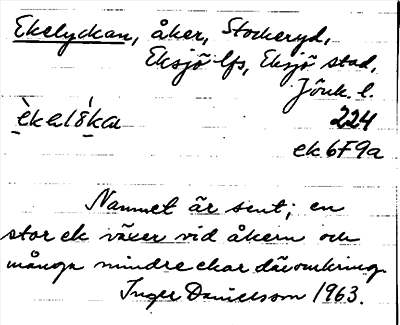 Ekelyckan, åker, Stockeryd,
Eksjö lfs, Eksjö stad,
Jönk. l.
èkalẏ́ka 224
ek 6F9a
Namnet är sent; en
stor ek växer vid åkern och
många mindre ekar däromkring.
Inger Danielsson 1963.